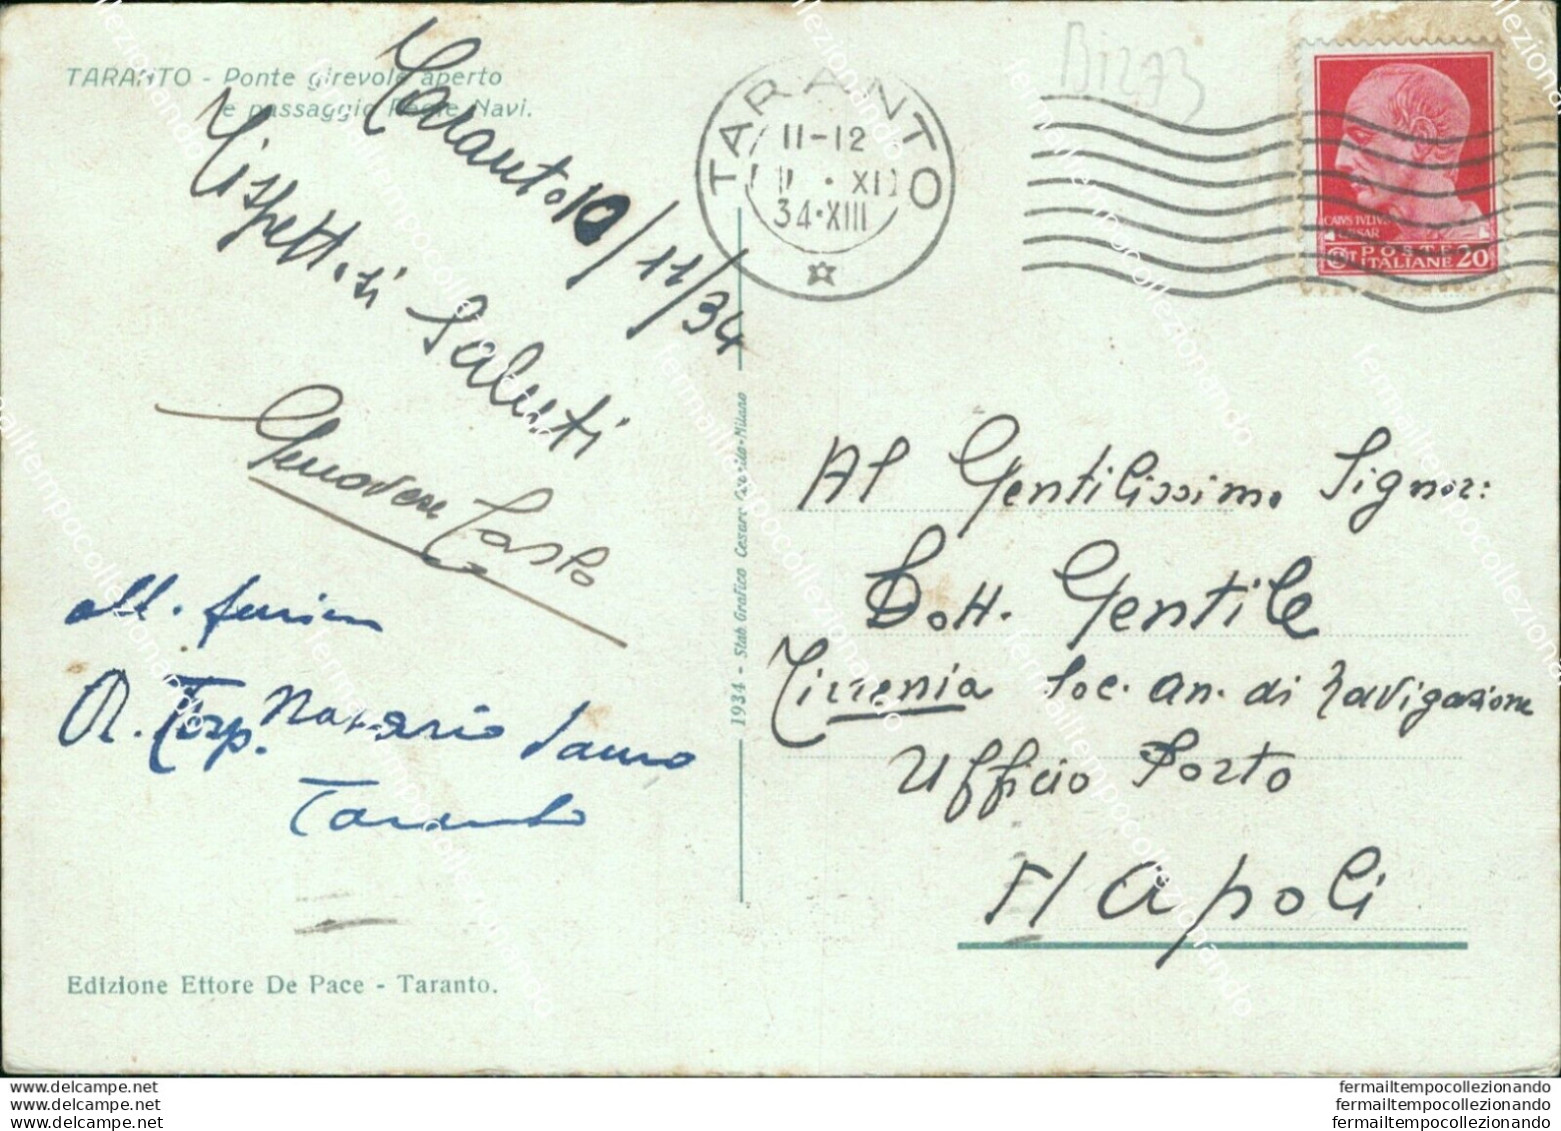 TARANTO - Ponte girevole aperto
e passaggio Regie Navi.
Taranto 10/11/34
Rispettosi Saluti
Genovese
all. furier
R. Torp. Nazario Sauro
Taranto
Edizione Ettore De Pace - Taranto.
1934 - Stab. Grafico Cesare Milano
TARANTO
11-12
XI
34·XIII
B1273
CAIVS IVLIVS
CAESAR
POSTE
ITALIANE 20
Al Gentilissimo Signor:
Dott. Gentile
Tirrenia Soc. an. di Navigazione
Ufficio Porto
Napoli
www.delcampe.net
www.delcampe.net
www.delcampe.net
fermailtempocollezionando
fermailtempocollezionando
fermailtempocollezionando